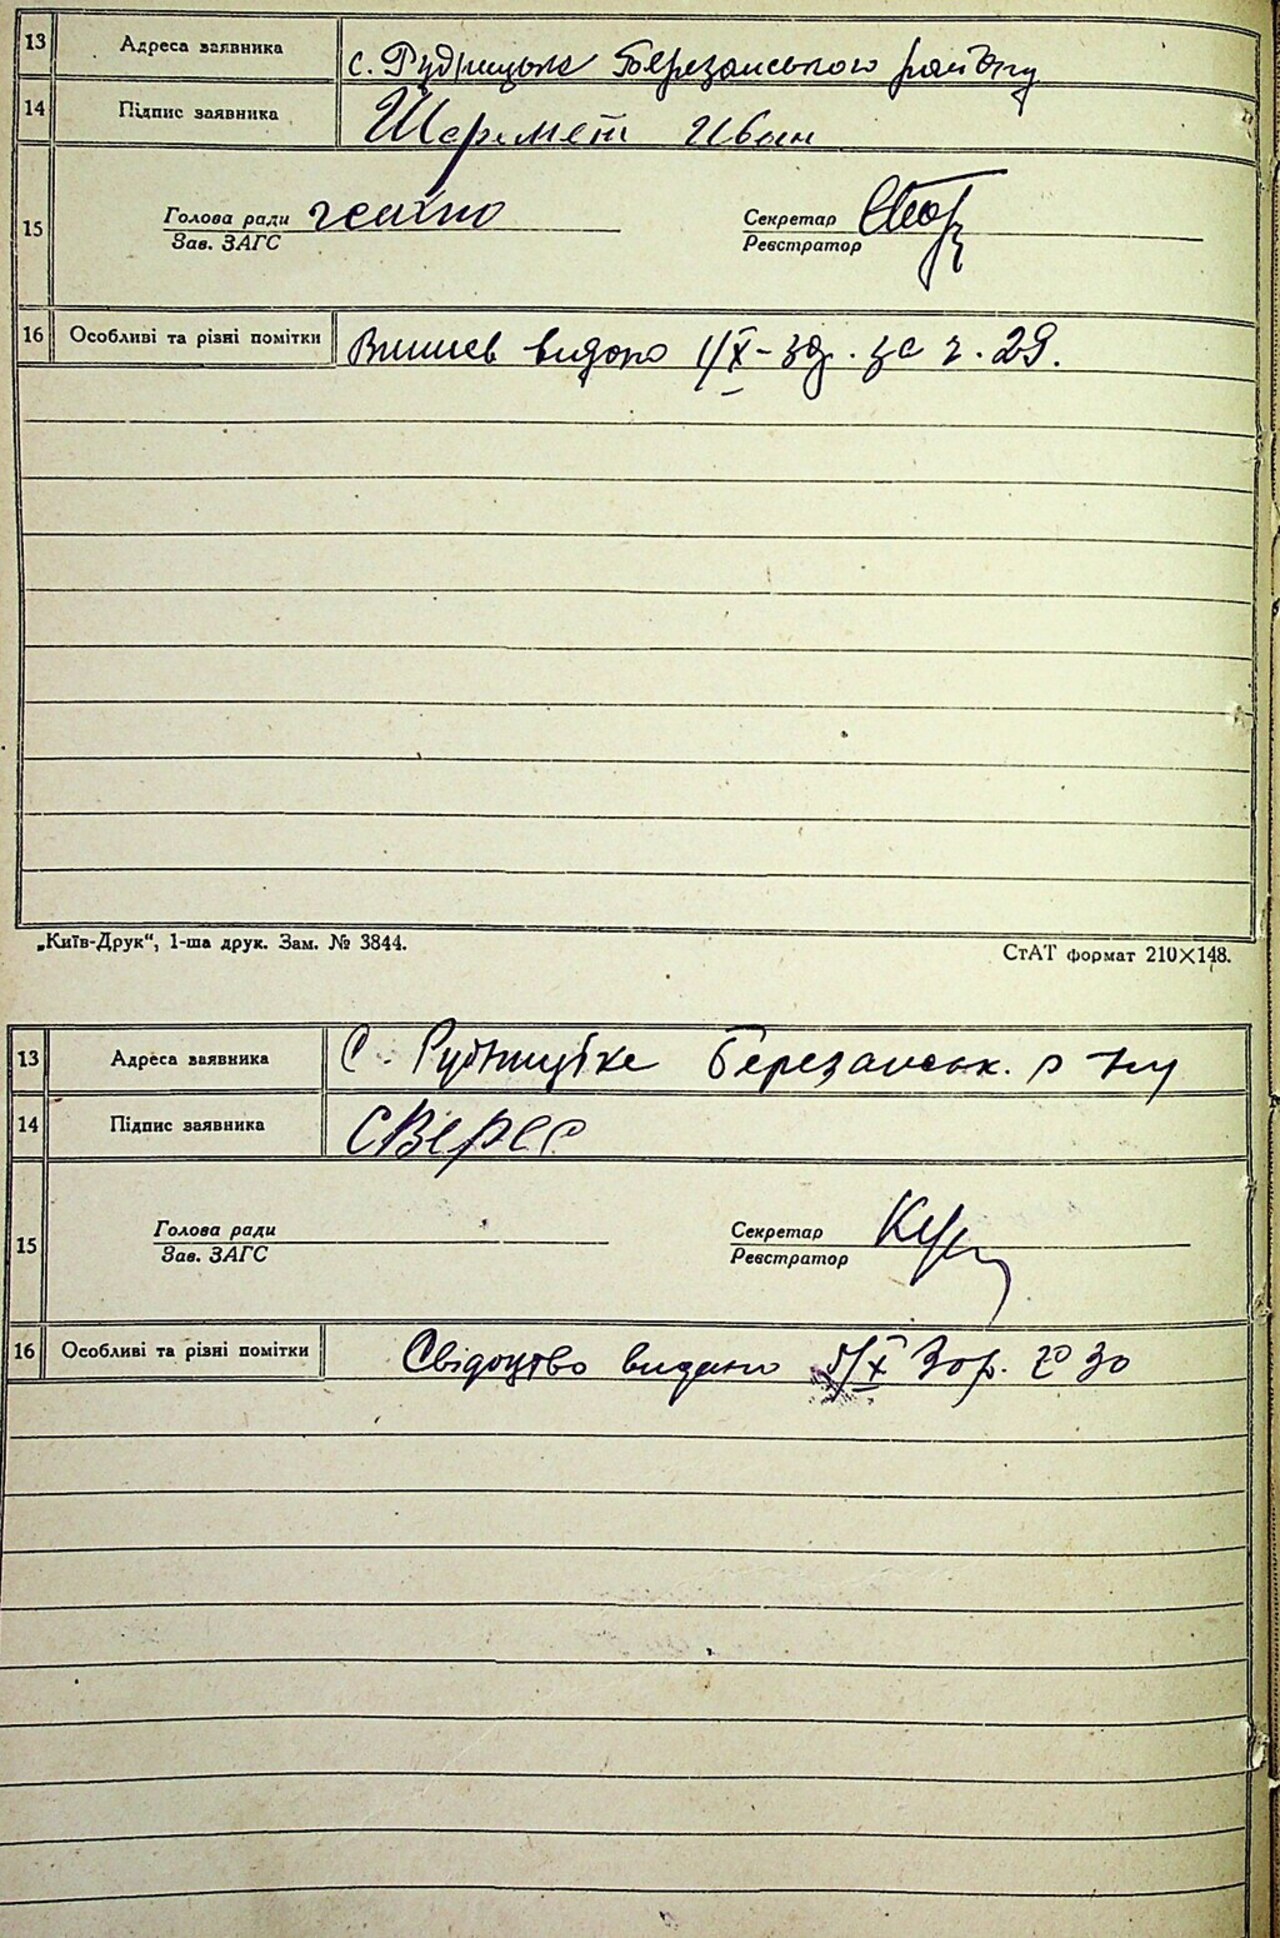 13 Адреса заявника с. Рудницьке Березанського району
14 Підпис заявника Шеремет Иван
15 Голова ради Секретар
Зав. ЗАГС Реєстратор
16 Особливі та різні помітки видано 1/X- за ч. 29.
„Київ-Друк“, 1-ша друк. Зам. № 3844. СтАТ формат 210×148.
13 Адреса заявника С. Рудницьке Березанськ. р-ну
14 Підпис заявника СВерес
15 Голова ради Секретар
Зав. ЗАГС Реєстратор
16 Особливі та різні помітки Свідоцтво видано 5/X 30р. 30